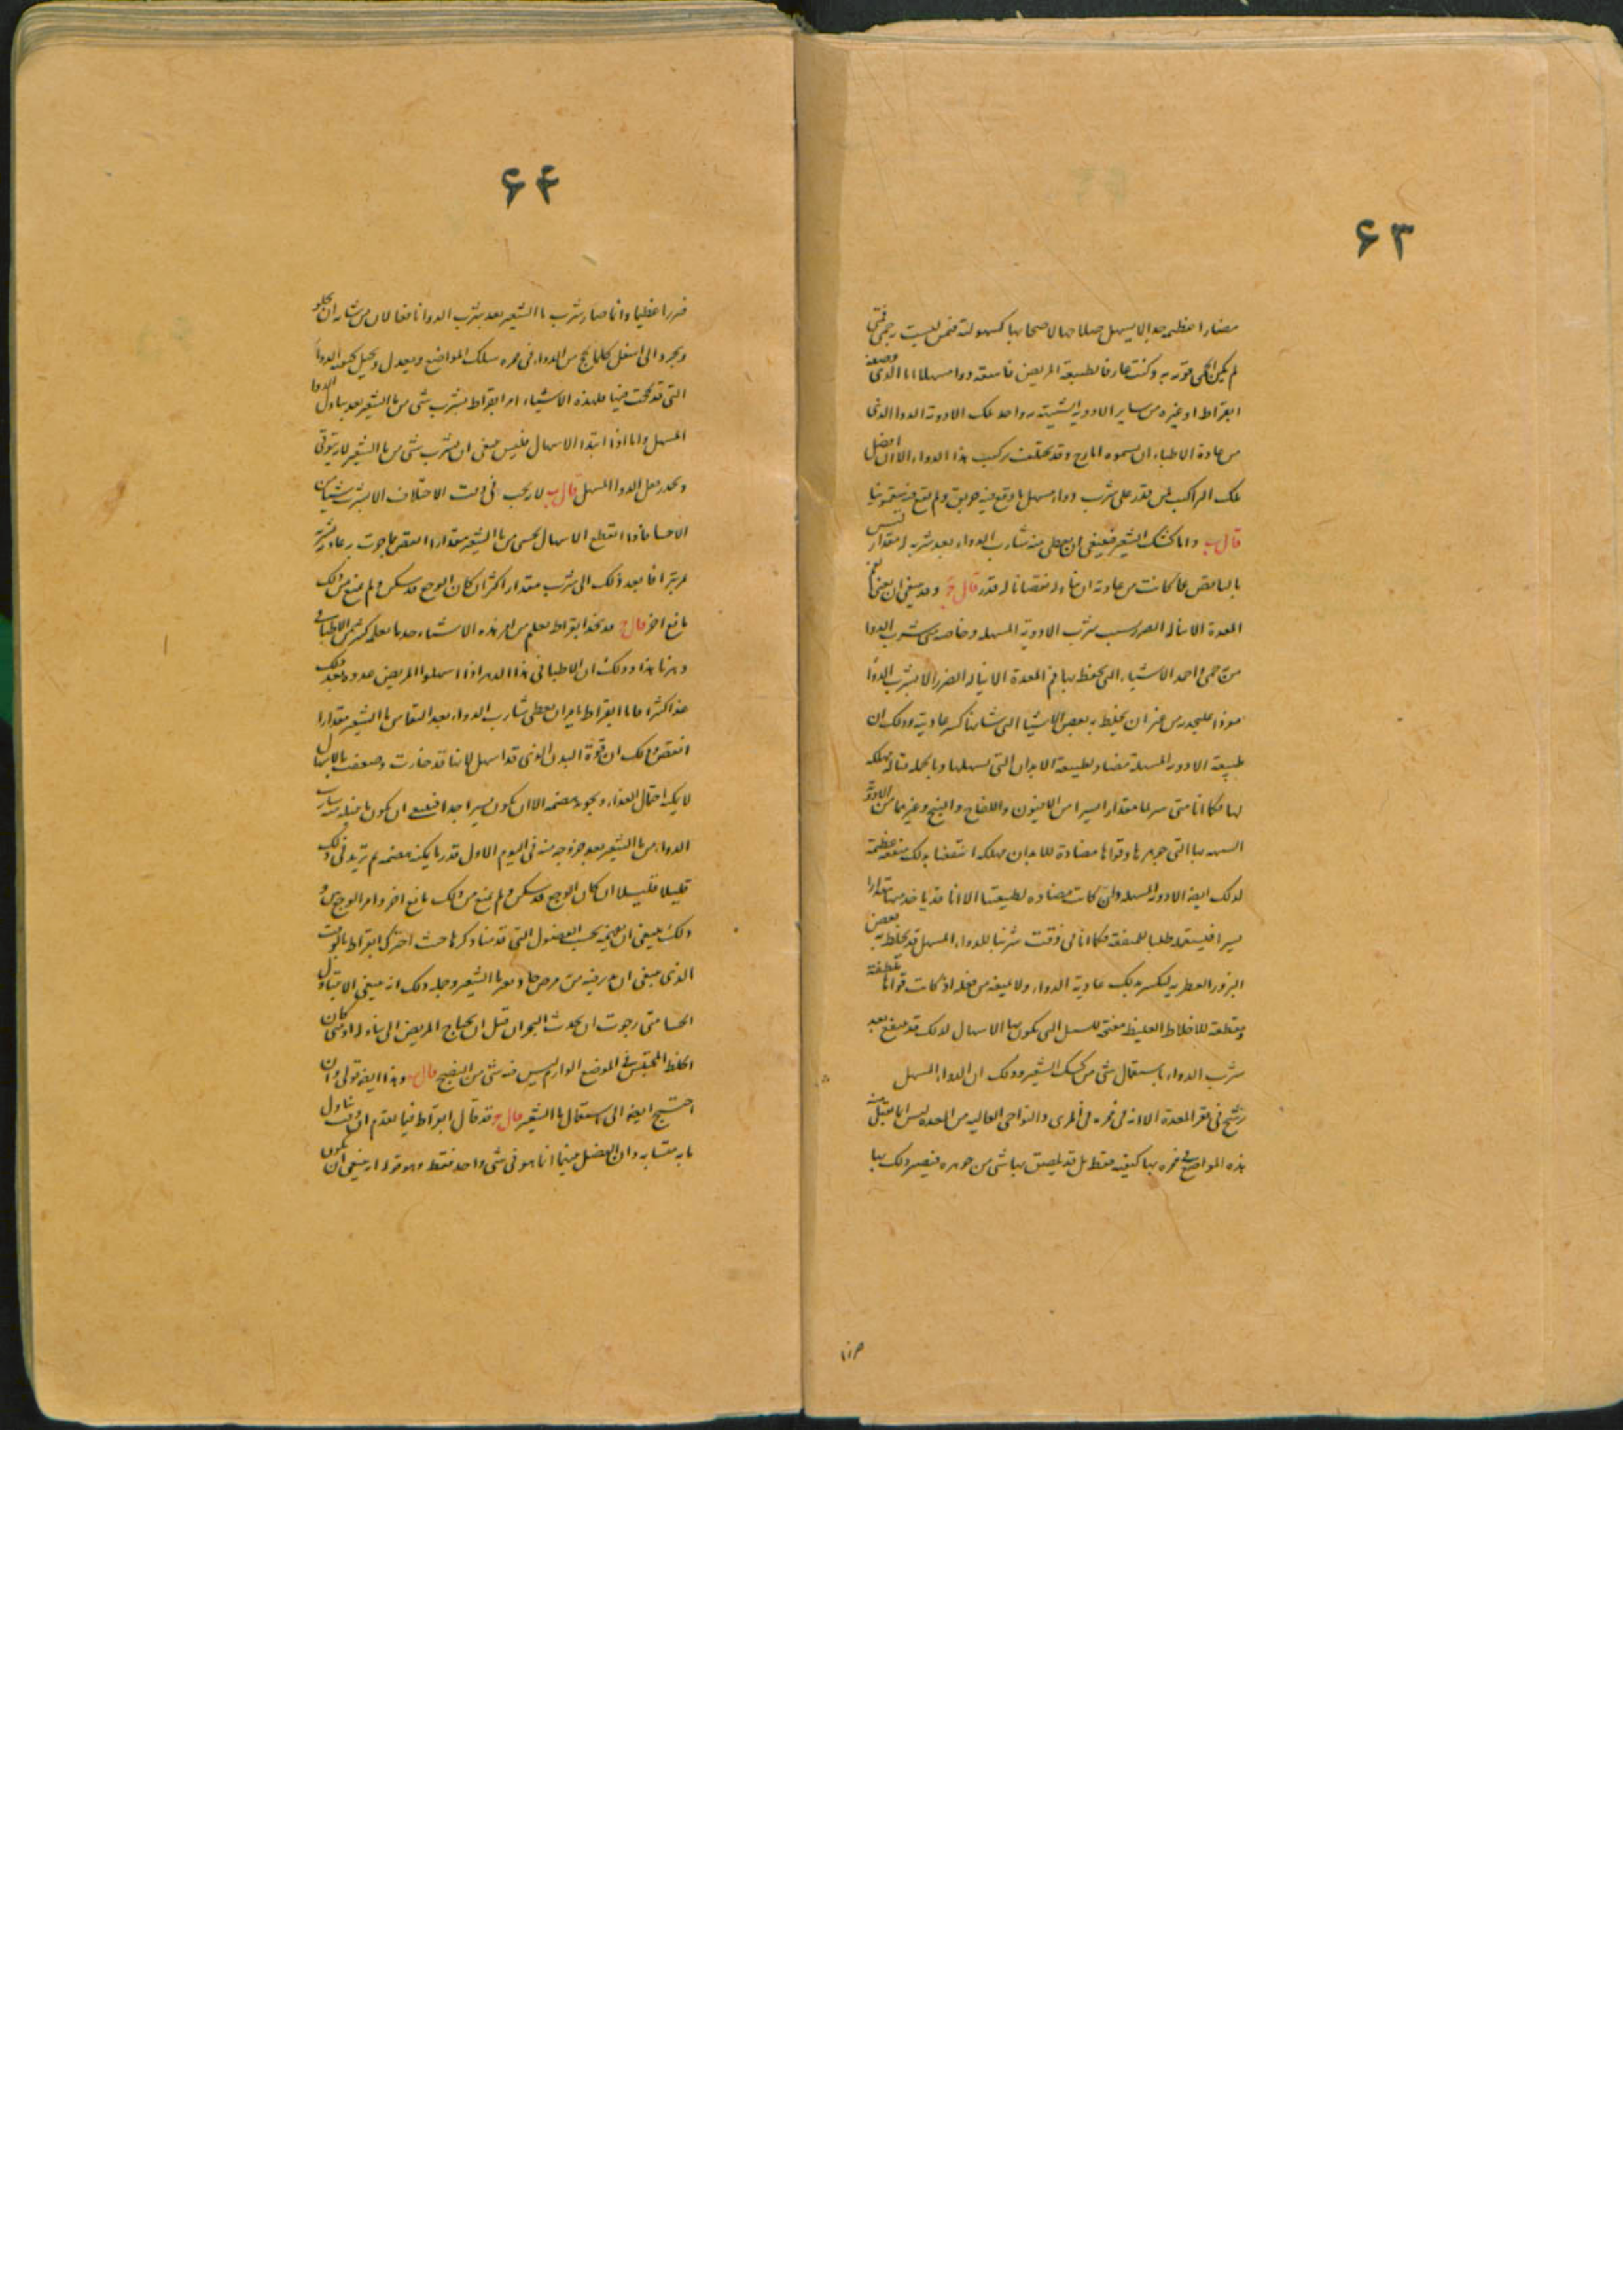 ۶۳
مضارا عظيمه جدا لا يسهل صلاحها لاصحابها كسهولته فمن ليست به حمى فمتى
لم يكن الحمى قويه وكنت عارفا بطبيعة المريض فاسقه دواء مسهلا اما الذى وصفه
ابقراط او غيره من ساير الادويه الشبيهة به واحد تلك الادوية الدوا الذى
من عادة الاطباء ان يسموه ايارج وقد يختلف تركيب هذا الدواء الا ان افضل
تلك التراكيب لمن يقدر على شرب دواء مسهل ما وقع فيه خربق ولم يقع فيه سقمونيا
قال ب واما كشك الشعير فينبغى ان يعطى منه شارب الدواء بعد شربه له مقدار ليس
باليسير انقص مما كانت من عادته ان يتناوله نقصانا له قدر قال ج وقد ينبغى ان يعنى بفم
المعدة لا يناله الضرر بسبب شرب الادوية المسهله وخاصه متى شرب الدوا
من حمى واحد الاشياء التى يحفظ بها فم المعدة الا يناله الضرر الا يشرب الدواء
مفردا فليحذر من غير ان يخلط به بعض الاشيا التى شانها كسر عاديته وذلك ان
طبيعة الادويه المسهلة مضاد لطبيعة الابدان التى تسهلها وبالجمله قتاله مهلكه
لها فكما انا متى سربنا مقدارا يسيرا من الافيون واللفاح والبنج وغيرها من الادوية
الشبيهه بها التى جوهرها وقواها مضادة للابدان مهلكه انتفعنا بذلك منفعه عظيمة
كذلك ايضا الادويه المسهله وان كانت مضاده لطبيعتنا الا انا قد ناخذ منها مقدارا
يسيرا فيستعمله طلبا للمنفعة فكما انا فى وقت شربنا للدواء المسهل قد نخلط به بعض
البزور العطريه ليكسر بذلك عادية الدواء ولا يمنعه من فعله اذ كانت قواها ملطفة
ومقطعة للاخلاط الغليظه مفتحه للسبل التى يكون بها الاسهال كذلك قد ينفع بعد
شرب الدواء باستعمال شى من كشك الشعير وذلك ان الدواء المسهل
يرشح فى قعر المعدة الا انه فى ممره فى المرى والنواحى العاليه من المعده ليس انما يقبل منه
هذه المواضع فى ممره بها كيفيته فقط بل قد يلصق بها شى من جوهره فيصير ذلك بها
ضررا
۶۴
ضررا عظيما وانما صار شرب ماء الشعير بعد شرب الدوا نافعا لان من شانه ان يجلو
ويجرد الى اسفل كلما لحج من الدواء فى ممره بتلك المواضع ويعدل ويحيل كيفيه الدواء
التى قد لحجت فيها فلهذه الاشياء امر ابقراط بشرب شى من ماء الشعير بعد تناول الدوا
المسهل واما اذا ابتدا الاسهال فليس ينبغى ان يشرب شى من ماء الشعير لانه يوقى
ويخدر فعل الدوا المسهل قال ب لانه يجب فى وقت الاختلاف الا يشرب شيئا من
الاحسا فاذا انقطع الاسهال تحسى من ماء الشعير مقدارا انقص مما جرت به عادته بشربه
ثم يترافا بعد ذلك الى شرب مقدار اكثر ان كان الوجع قد سكن ولم يمنع من ذلك
مانع اخر قال ج قد نجد ابقراط يعلم من امر هذه الاشياء ضد ما يعلمه كثير من الاطباء فى
دهرنا هذا وذلك ان الاطبا فى هذا الدهر اذا اسهلوا المريض غدوه بعد ذلك
غذا كثيرا فاما ابقراط يامر ان يعطى شارب الدواء بعد النقا من ماء الشعير مقدارا
انقص وذلك ان قوة البدن الذى قد اسهل لانها قد خارت وضعفت بالاسهال
لا يمكنه احتمال الغذاء ويجوده هضمه الا ان يكون يسيرا جدا فينبغى ان يكون ما يتناوله شارب
الدواء من ماء الشعير بعد خروجه منه فى اليوم الاول قدر ما يمكنه هضمه ثم تزيد فى ذلك
قليلا قليلا ان كان الوجع قد سكن ولم يمنع من ذلك مانع اخر وامر الوجع فى
ذلك ينبغى ان تميزه بحسب الفصول التى قدمنا ذكرها حيث اخبرك ابقراط بالوقت
الذى ينبغى ان يبتدى فيه من مرض حاد بماء الشعير وجمله ذلك انه ينبغى الا يتناول
الحسا متى رجوت ان يحدث البحران قبل ان يحتاج المريض الى تناوله او متى كان
الخلط المحتقن فى الموضع الوارم ليس فيه شى من النضج قال ب وهذا ايضا قولى وان
احتيج ايضا الى استعمال ماء الشعير قال ج قد قال ابقراط فيما تقدم ان وقت تناول
ما به متشابه وان الفصل بينهما انما هو فى شى واحد فقط وهو قوله انه ينبغى ان يكون